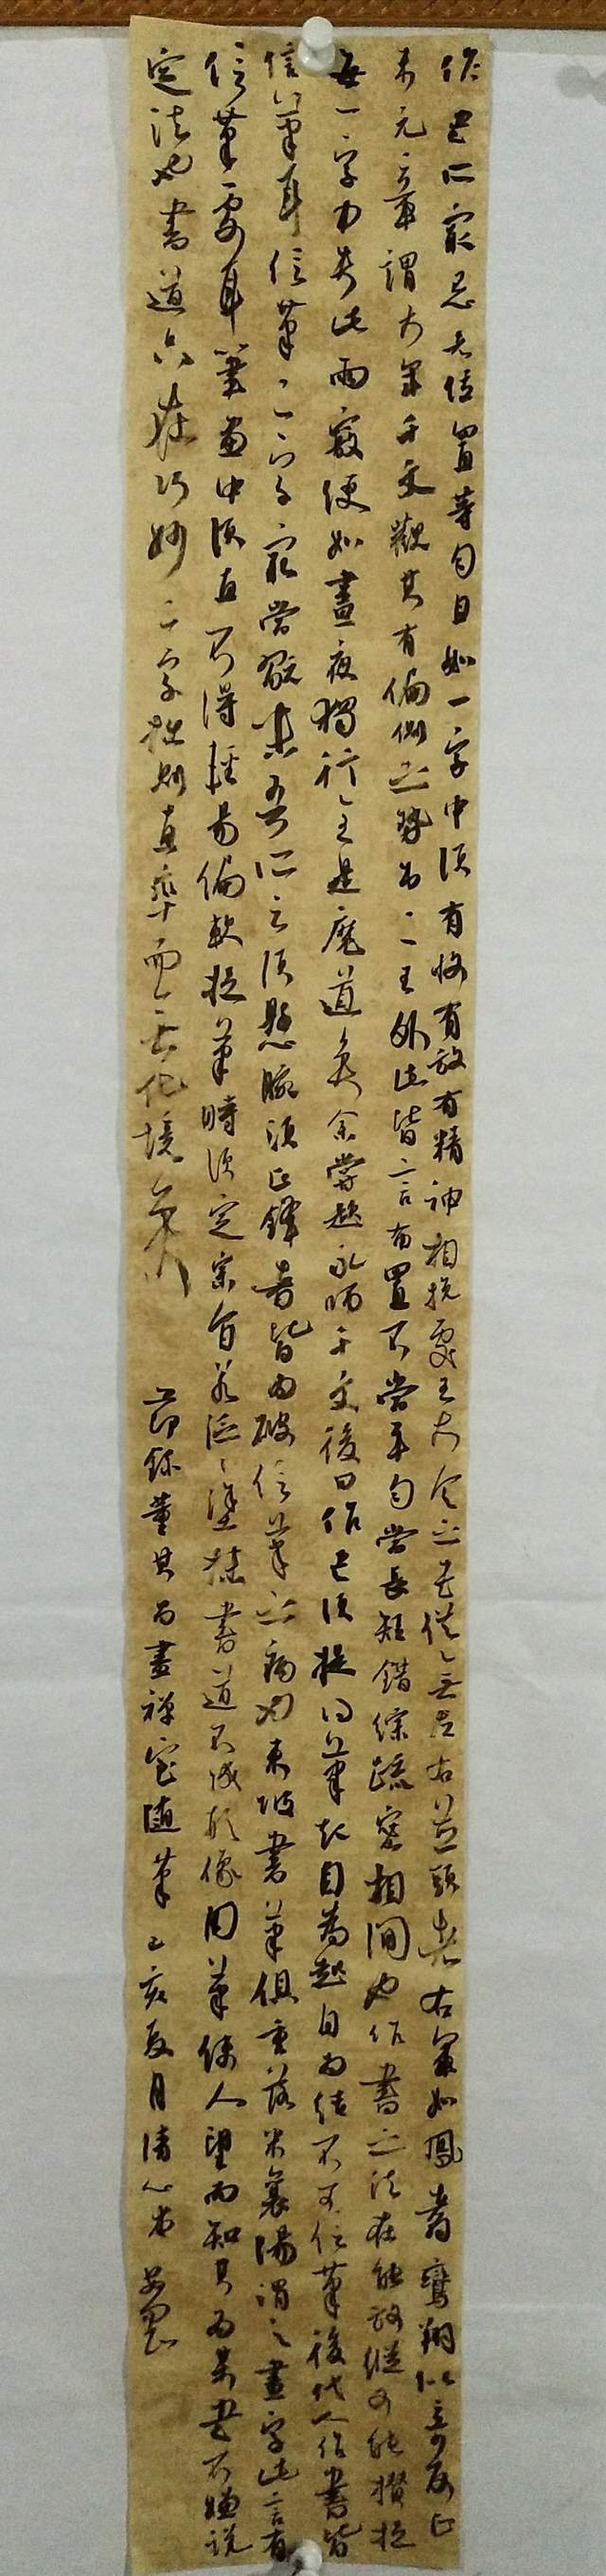 作书所最忌者位置等匀且如一字中須有收有放有精神相挽處王大令之书從無左右並頭者右軍如鳳翥鸞翔似奇反正
米元章謂大年千文觀其有偏側之勢出二王外此皆言布置不當平匀當長短錯綜疏密相間也作書之法在能放縱又能攢捉
每一字中失此兩竅便如晝夜獨行全是魔道矣余嘗題永師千文後曰作书須提得筆起自為起自為結不可信筆後代人作書皆
信筆耳信筆二字最當玩味吾所云須懸腕須正鋒者皆為破信筆之病也東坡書筆俱重落米襄陽謂之畫字此言有
信筆處耳筆畫中須直不得輕易偏軟捉筆時須定宗旨若泛泛塗抹書道不成形像用筆使人望而知其為某书不嫌說
定法也書道只在巧妙二字拙則直率而無化境矣
節錄董其昌畫禪室隨筆乙亥夏月清心